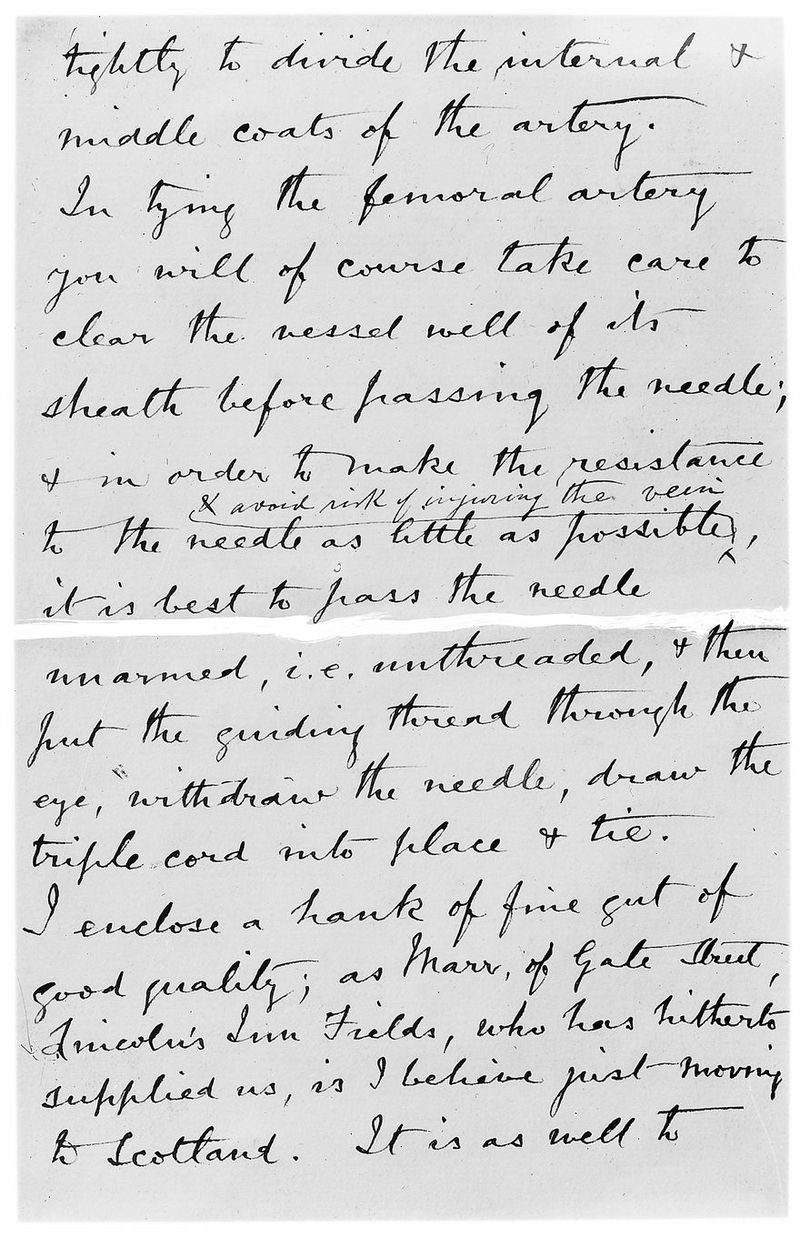 tightly to divide the internal &
middle coats of the artery.
In tying the femoral artery
you will of course take care to
clear the vessel well of its
sheath before passing the needle;
& in order to make the resistance
& avoid risk of injuring the vein
to the needle as little as possible,
it is best to pass the needle
unarmed, i.e. unthreaded, & then
put the guiding thread through the
eye, withdraw the needle, draw the
triple cord into place & tie.
I enclose a hank of fine gut of
good quality; as Marr, of Gate Street,
Lincoln's Inn Fields, who has hitherto
supplied us, is I believe just moving
to Scotland. It is as well to